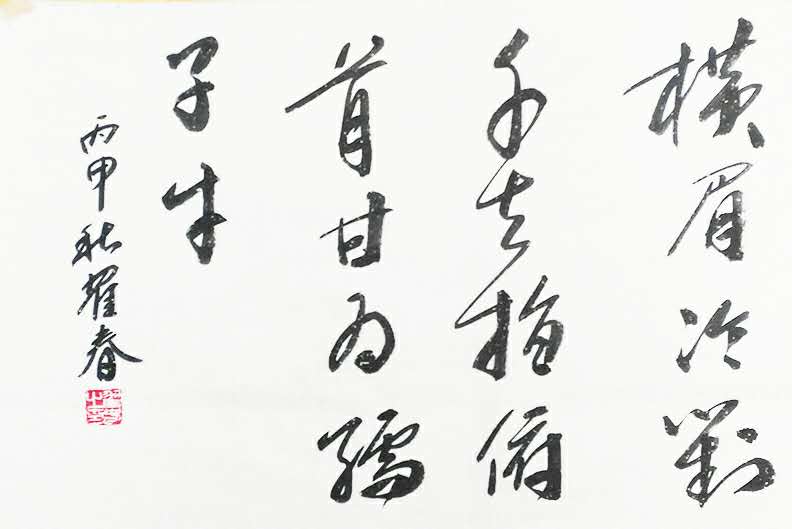 横眉冷對
千夫指俯
首甘为孺
子牛
丙申秋耀春